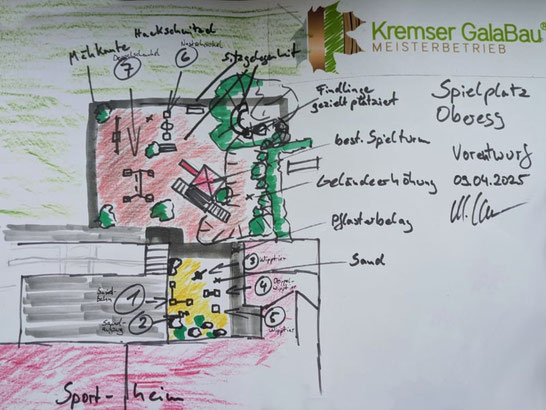 Kremser GalaBau®
MEISTERBETRIEB
Spielplatz
Oberegg
Vorentwurf
09.04.2025
Hackschnitzel
Mähkante
Doppelschaukel
7
6
Nestschaukel
Sitzgelegenheit
Findlinge
gezielt platziert
best. Spielturm
Geländeerhöhung
Pflasterbelag
Sand
3 Wipptier
4 Doppel-
wipptier
5 Wipptier
1
2
Sport-heim